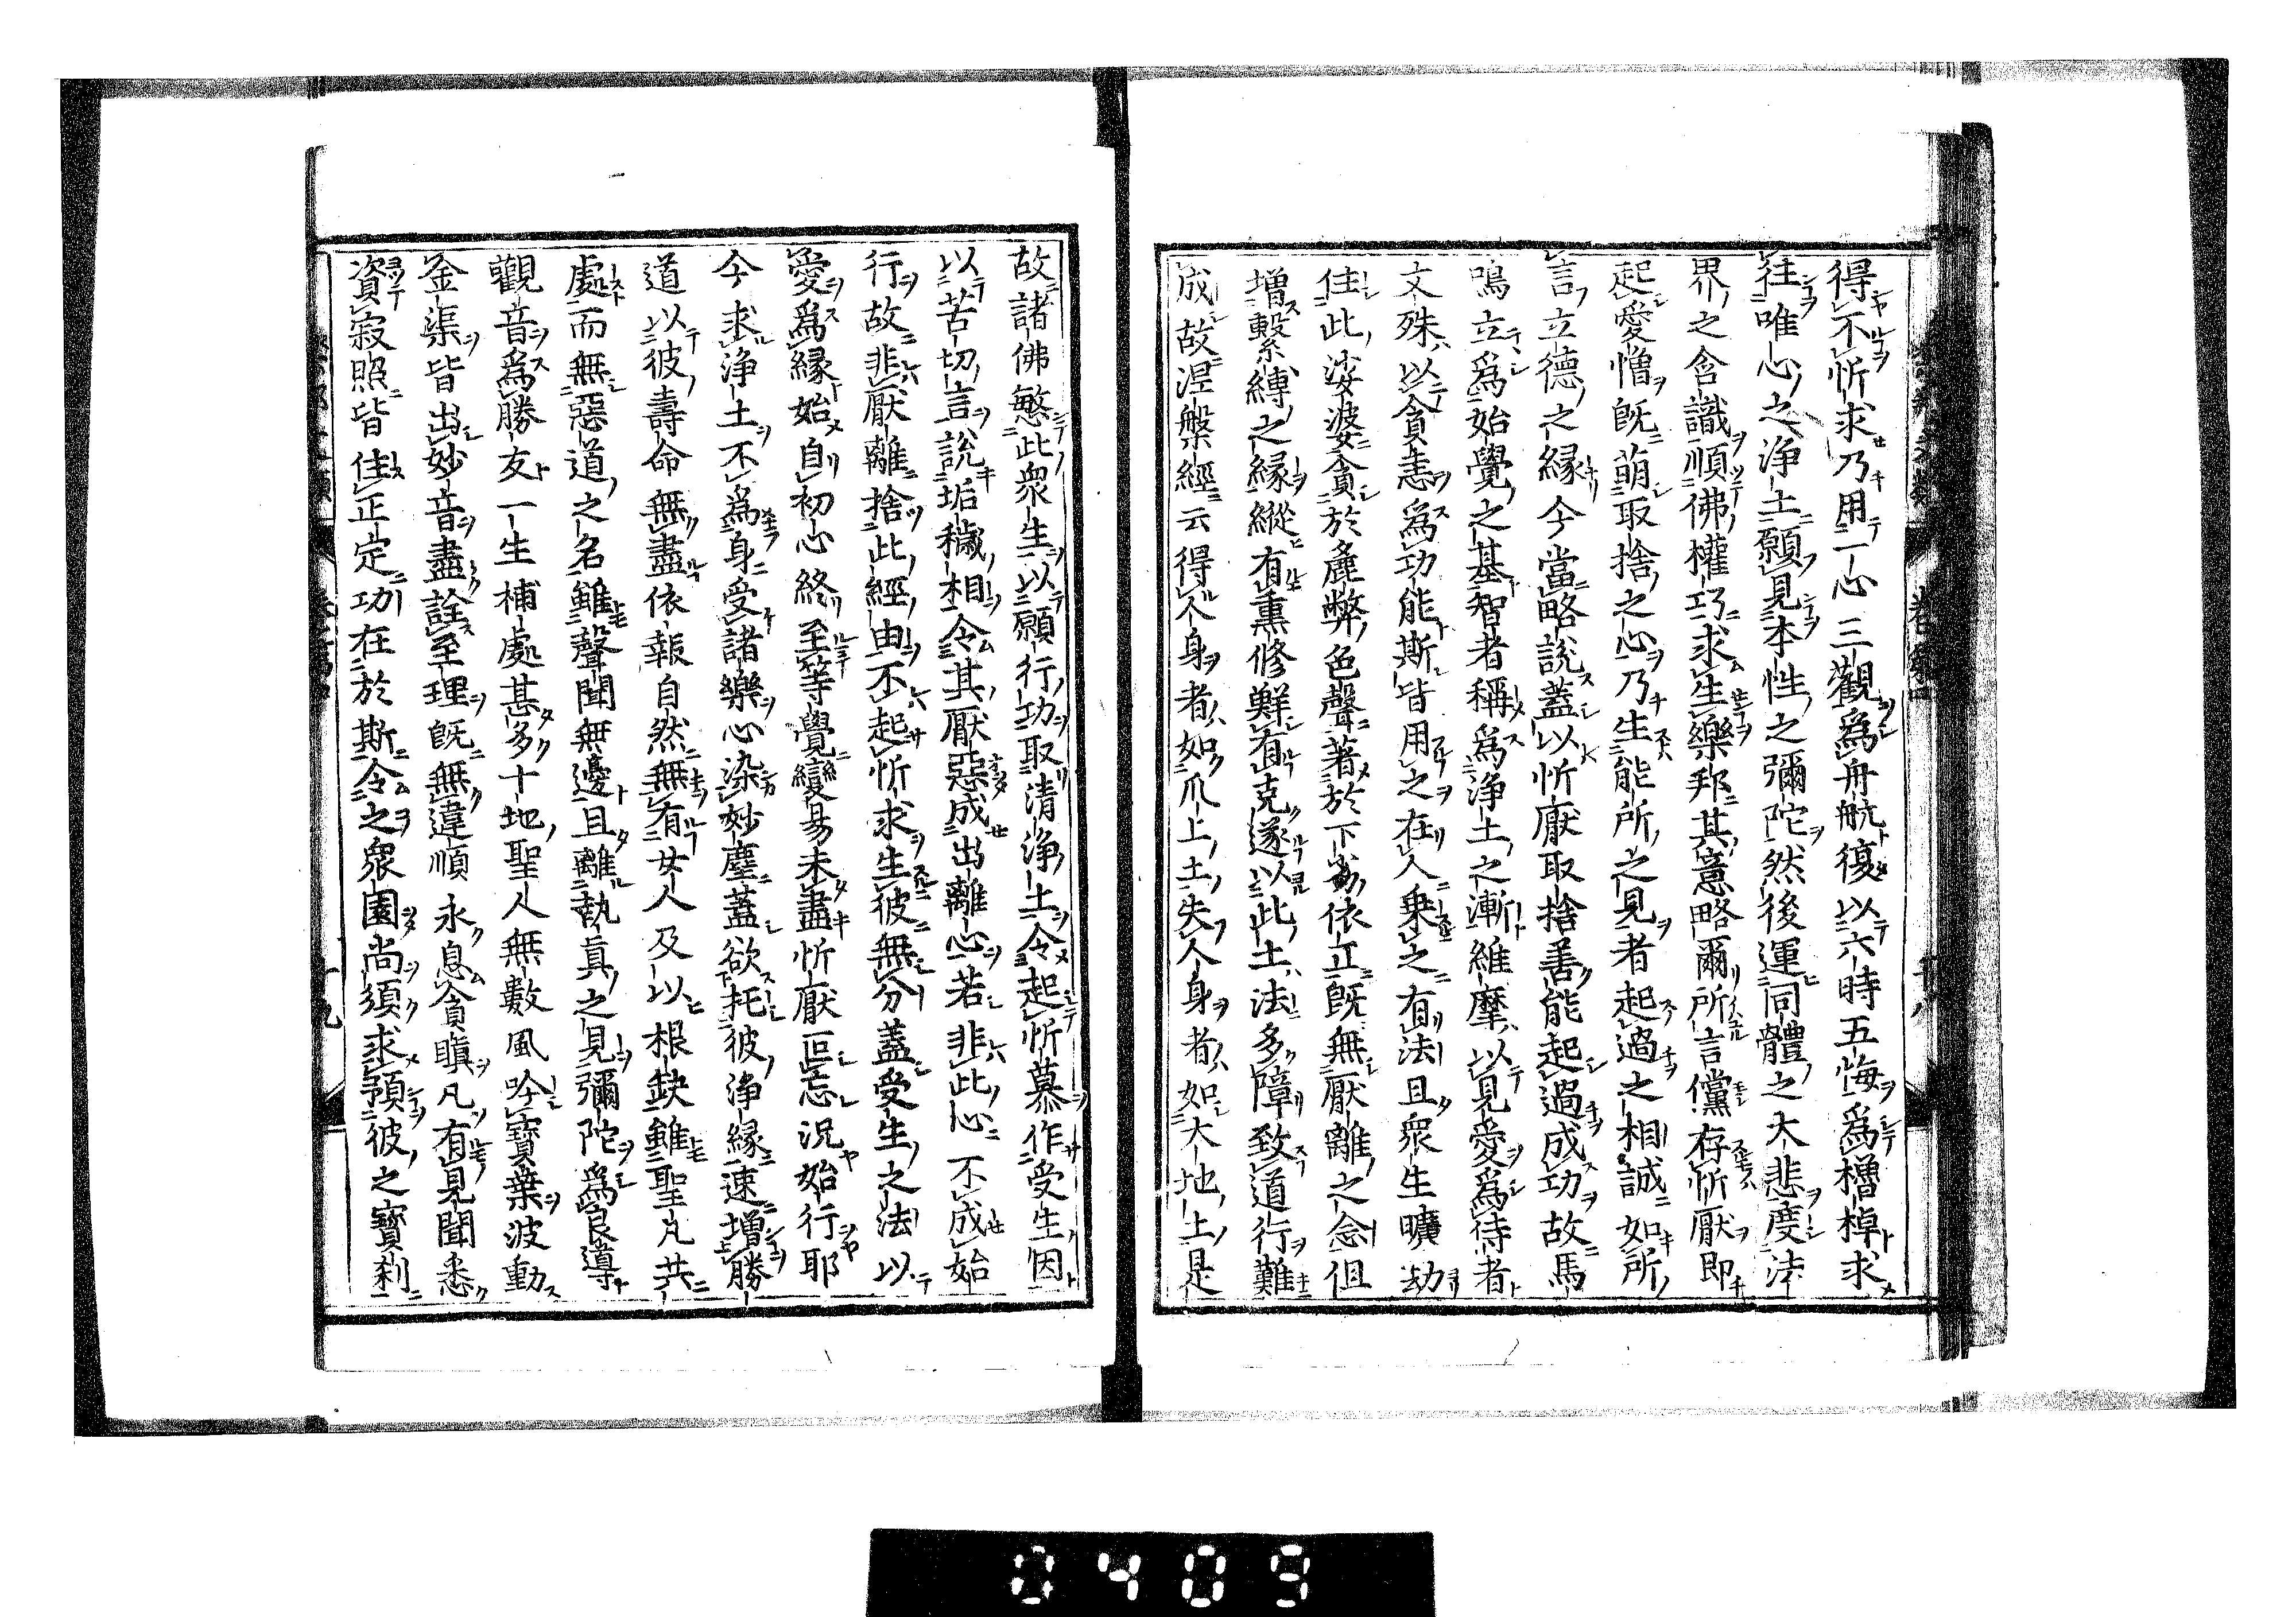 得不忻求乃用一心三觀爲舟航復以六時五悔爲櫓棹求
往唯心之淨土願見本性之彌陀然後運同體之大悲度法
界之含識順佛權巧求生樂邦其意略爾所言儻存忻厭即
起愛憎既萌取捨之心乃生能所之見者起過之相誠如所
言立德之緣今當略說蓋以忻厭取捨善能起過成功故馬
鳴立爲始覺之基智者稱爲淨土之漸維摩以見愛爲侍者
文殊以貪恚爲功能斯皆用之在人乗之有法且衆生曠劫
住此娑婆貪於麁弊色聲著於下劣依正既無厭離之念但
増繫縛之緣縱有熏修鮮有克遂以此土法多障致道行難
成故涅槃經云得人身者如爪上土失人身者如大地土是
故諸佛愍此衆生以願行功取清淨土令起忻慕作受生因
以苦切言說垢穢相令其厭惡成出離心若非此心不成始
行故非厭離捨此經由不起忻求生彼無分蓋受生之法以
愛爲緣始自初心終至等覺變易未盡忻厭叵忘況始行耶
今求淨土不爲身受諸樂心染妙塵蓋欲托彼淨緣速增勝
道以彼壽命無盡依報自然無有女人及以根缺雖聖凡共
處而無惡道之名雖聲聞無邊且離執眞之見彌陀爲良導
觀音爲勝友一生補處甚多十地聖人無數風吟寶葉波動
金渠皆出妙音盡詮至理既無違順永息貪瞋凡有見聞悉
資寂照皆住正定功在於斯令之衆園尚須求預彼之寶刹
0409